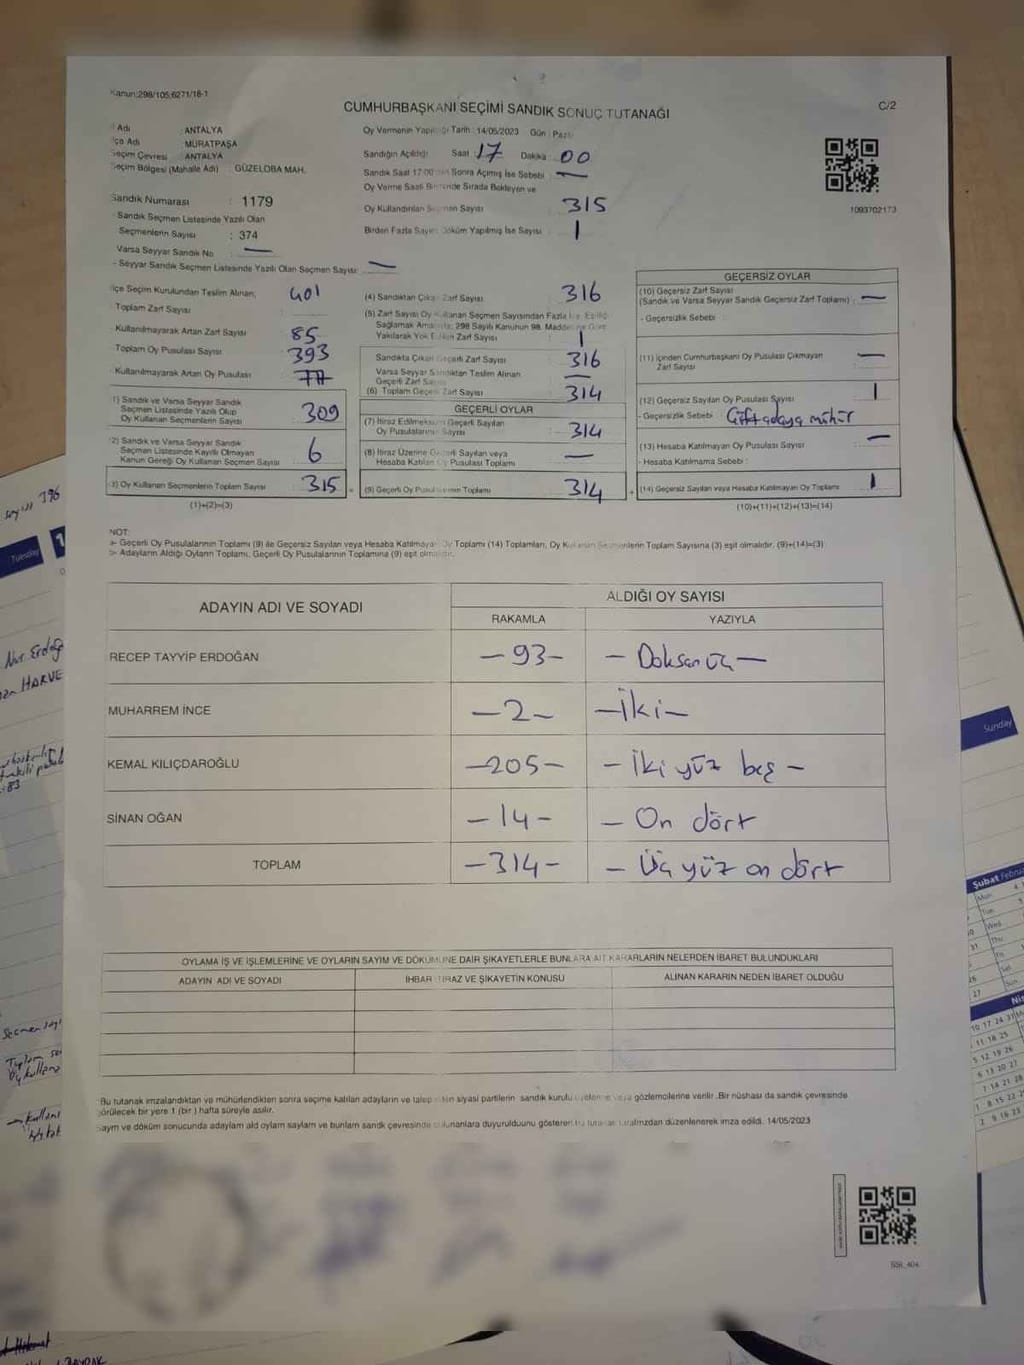 Kanun:298/105;6271/18-1
CUMHURBAŞKANI SEÇİMİ SANDIK SONUÇ TUTANAĞI
C/2
Adı : ANTALYA
MURATPAŞA
Seçim Çevresi : ANTALYA
Seçim Bölgesi (Mahalle Adı) : GÜZELOBA MAH.
Sandık Numarası : 1179
Sandık Seçmen Listesinde Yazılı Olan
Seçmenlerin Sayısı : 374
Varsa Seyyar Sandık No : —
- Seyyar Sandık Seçmen Listesinde Yazılı Olan Seçmen Sayısı: —
Oy Vermenin Yapıldığı Tarih : 14/05/2023 Gün : Pazar
Sandığın Açıldığı Saat : 17 Dakika : 00
Sandık Saat 17:00'den Sonra Açılmış İse Sebebi : —
Oy Verme Saati Bitiminde Sırada Bekleyen ve
Oy Kullandırılan Seçmen Sayısı : 315
Birden Fazla Sayım Döküm Yapılmış İse Sayısı : 1
1093702173
İlçe Seçim Kurulundan Teslim Alınan, 401
Toplam Zarf Sayısı
Kullanılmayarak Artan Zarf Sayısı 85
Toplam Oy Pusulası Sayısı 393
Kullanılmayarak Artan Oy Pusulası 77
1) Sandık ve Varsa Seyyar Sandık
Seçmen Listesinde Yazılı Olup
Oy Kullanan Seçmenlerin Sayısı 309
2) Sandık ve Varsa Seyyar Sandık
Seçmen Listesinde Kayıtlı Olmayan
Kanun Gereği Oy Kullanan Seçmen Sayısı 6
3) Oy Kullanan Seçmenlerin Toplam Sayısı 315
(1)+(2)=(3)
(4) Sandıktan Çıkan Zarf Sayısı : 316
(5) Zarf Sayısı Oy Kullanan Seçmen Sayısından Fazla İse, Eşitliği
Sağlamak Amacıyla; 298 Sayılı Kanunun 98. Maddesine Göre
Yakılarak Yok Edilen Zarf Sayısı : 1
Sandıkta Çıkan Geçerli Zarf Sayısı 316
Varsa Seyyar Sandıktan Teslim Alınan
Geçerli Zarf Sayısı —
(6) Toplam Geçerli Zarf Sayısı : 314
GEÇERLİ OYLAR
(7) İtiraz Edilmeksizin Geçerli Sayılan
Oy Pusulalarının Sayısı 314
(8) İtiraz Üzerine Geçerli Sayılan veya
Hesaba Katılan Oy Pusulası Toplamı —
(9) Geçerli Oy Pusulalarının Toplamı 314
GEÇERSİZ OYLAR
(10) Geçersiz Zarf Sayısı
(Sandık ve Varsa Seyyar Sandık Geçersiz Zarf Toplamı) : —
- Geçersizlik Sebebi :
(11) İçinden Cumhurbaşkanı Oy Pusulası Çıkmayan
Zarf Sayısı —
(12) Geçersiz Sayılan Oy Pusulası Sayısı 1
- Geçersizlik Sebebi : Çift adaya mühür
(13) Hesaba Katılmayan Oy Pusulası Sayısı : —
- Hesaba Katılmama Sebebi :
(14) Geçersiz Sayılan veya Hesaba Katılmayan Oy Toplamı 1
(10)+(11)+(12)+(13)=(14)
NOT:
➢ Geçerli Oy Pusulalarının Toplamı (9) ile Geçersiz Sayılan veya Hesaba Katılmayan Oy Toplamı (14) Toplamları, Oy Kullanan Seçmenlerin Toplam Sayısına (3) eşit olmalıdır. (9)+(14)=(3)
➢ Adayların Aldığı Oyların Toplamı, Geçerli Oy Pusulalarının Toplamına (9) eşit olmalıdır.
ADAYIN ADI VE SOYADI
ALDIĞI OY SAYISI
RAKAMLA YAZIYLA
RECEP TAYYİP ERDOĞAN -93- - Doksan üç -
MUHARREM İNCE -2- -İki-
KEMAL KILIÇDAROĞLU -205- - İki yüz beş -
SİNAN OĞAN -14- - On dört
TOPLAM -314- - Üç yüz on dört
OYLAMA İŞ VE İŞLEMLERİNE VE OYLARIN SAYIM VE DÖKÜMÜNE DAİR ŞİKAYETLERLE BUNLARA AİT KARARLARIN NELERDEN İBARET BULUNDUKLARI
ADAYIN ADI VE SOYADI İHBAR İTİRAZ VE ŞİKAYETİN KONUSU ALINAN KARARIN NEDEN İBARET OLDUĞU
Bu tutanak imzalandıktan ve mühürlendikten sonra seçime katılan adayların ve talep eden siyasi partilerin sandık kurulu üyelerine veya gözlemcilerine verilir. Bir nüshası da sandık çevresinde
görülecek bir yere 1 (bir) hafta süreyle asılır.
Sayım ve döküm sonucunda düzenlenerek imza edildi. 14/05/2023
Tuesday
Sunday
Şubat